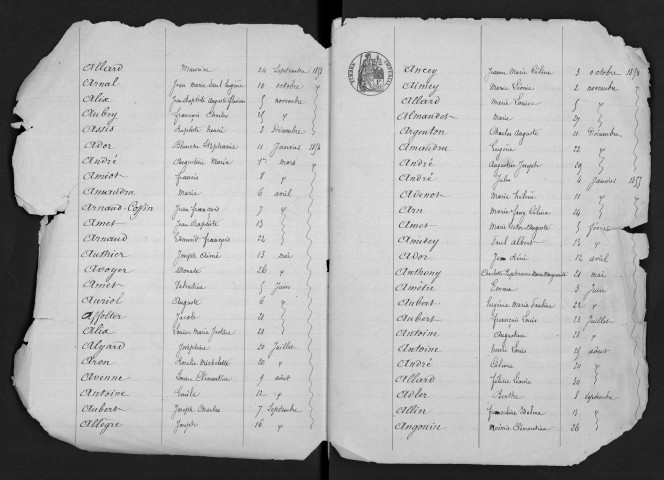 Allard Maurice 24 Septembre 1853
Arnal Jean Marie Paul Eugène 10 octobre "
Alix Jean Baptiste Auguste 5 novembre
Aubry François Charles 25 "
Assis Baptiste Henri 3 Décembre
Ador Blanche Stéphanie 11 Janvier 1854
André Augustine Maria 1er mars "
Amiot Francis 8 "
Amaudru Marie 6 avril
Arnaud-Coffin Jean François 7 "
Amet Jean Baptiste 13
Arnaud Edmond François 22
Authier Joseph Aimé 13 mai
Avoyer Donate 26 "
Amet Valentine 5 Juin
Auriol Auguste 6 "
Affolter Jacob 21
Alix Louise Marie Justine 21
Alyard Joséphine 20 Juillet
Aron 20 "
Avenne Louise Clémentine 9 août
Antoine Emile 12 "
Aubert Joseph Charles 7 Septembre
Allègre Joseph 16 "
TIMBRE IMPERIAL
Ancey Jeanne Marie Céline 3 octobre 1854
Aimey Marie Léonie 2 novembre "
Allard Marie Louise 5 "
Almandot Marie 27
Argenton Charles Auguste 11 Décembre
Amaudru Eugène 22 "
André Augustin Joseph 29
André Jules 4 Janvier 1855
Avenot Marie 11 "
Arn Céline 24
Amet Marie Victor Auguste 5 février
Amedey Paul Albert 13 "
Ador Jean Réné 12 avril
Anthony Charlotte Marguerite 21 mai
Amètre Emma 3 Juin
Aubert Eugénie Marie Pauline 22 "
Aubert François Louis 23 Juillet
Antoine Augustine 25
Antoine Henri Louis 25 août
André Céline 30 "
Allard 30
Adler Berthe 8 Septembre
Allin 13 "
Angonin Noémie Clémentine 26